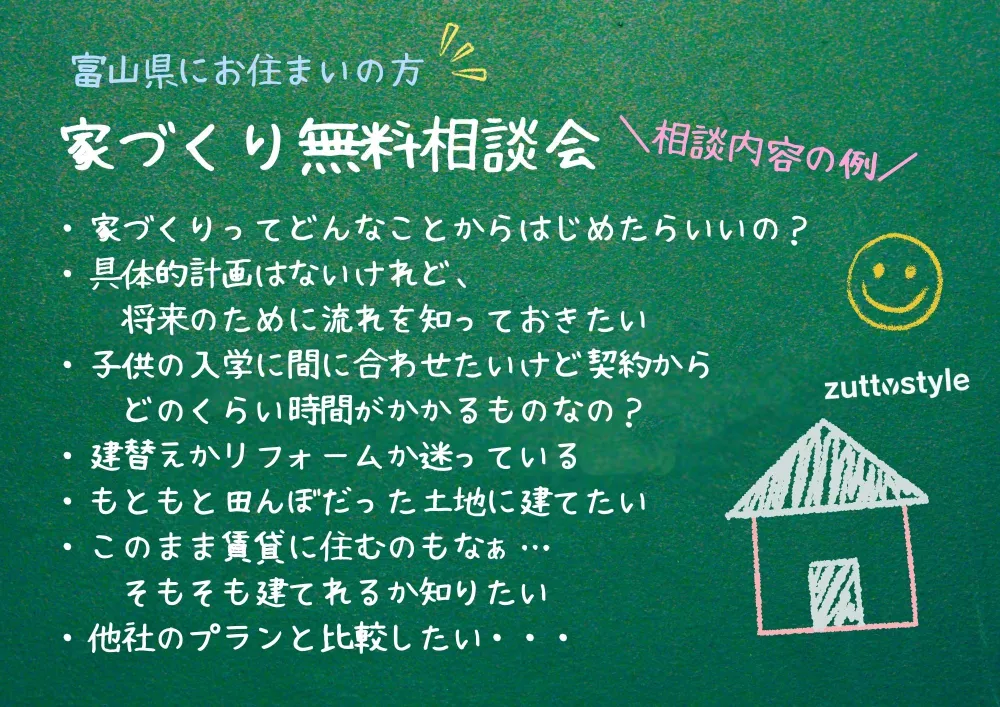 富山県にお住まいの方
家づくり無料相談会
＼相談内容の例／
・家づくりってどんなことからはじめたらいいの？
・具体的計画はないけれど、
将来のために流れを知っておきたい
・子供の入学に間に合わせたいけど契約から
どのくらい時間がかかるものなの？
・建替えかリフォームか迷っている
・もともと田んぼだった土地に建てたい
・このまま賃貸に住むのもなぁ…
そもそも建てれるか知りたい
・他社のプランと比較したい・・・
zuttostyle